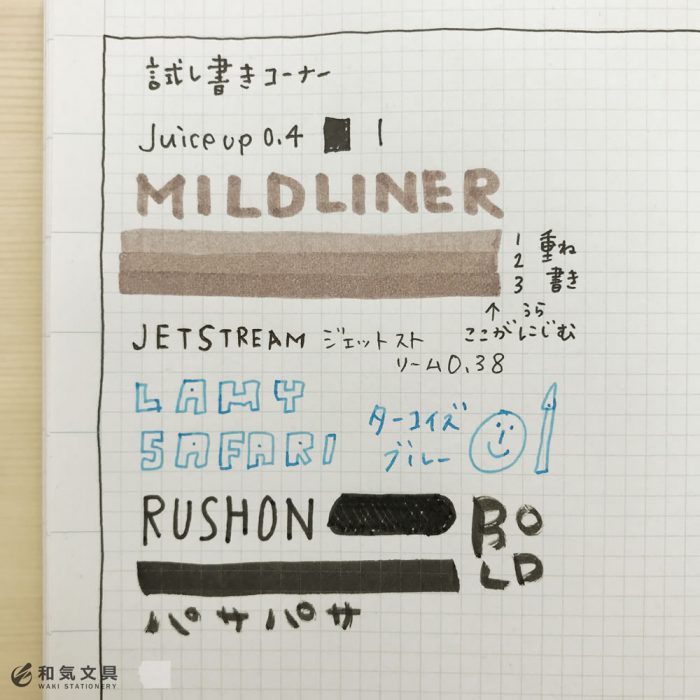 試し書きコーナー
Juice up 0.4
MILDLINER
1 重ね
2
3 書き
↑ うら
ここがにじむ
JETSTREAM ジェットスト
リーム0.38
LAMY
SAFARI
ターコイズ
ブルー
RUSHON
BO
LD
パサパサ
和気文具
WAKI STATIONERY